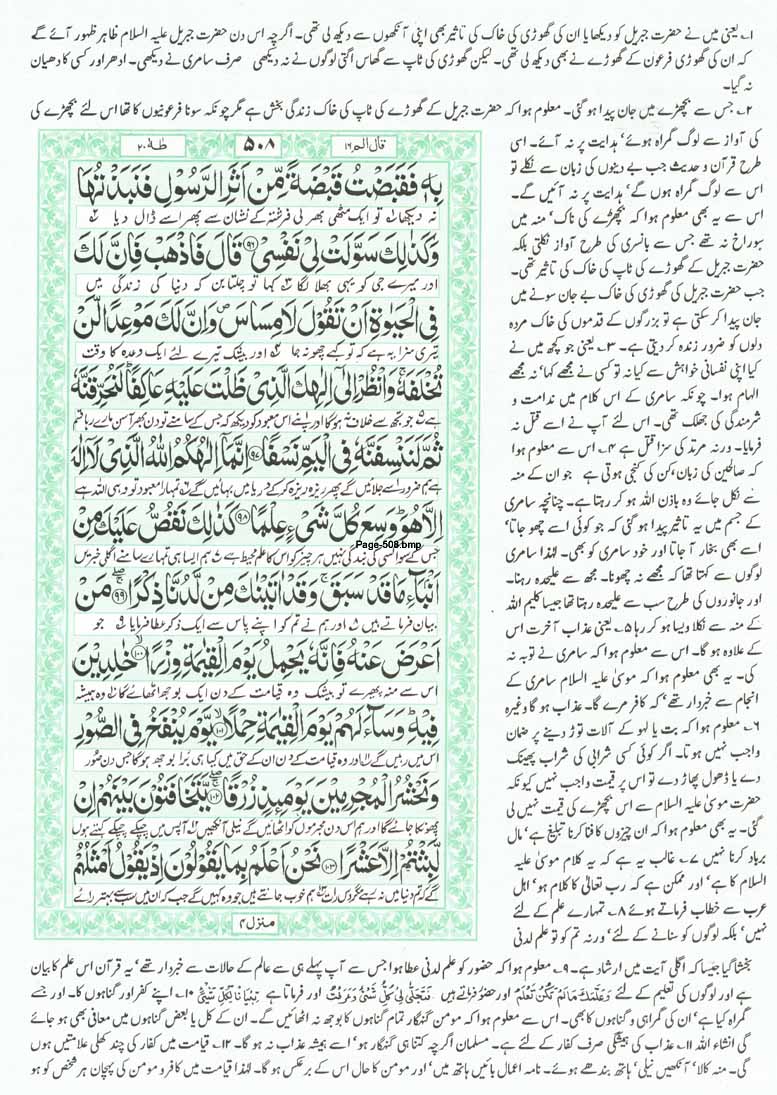 ۱۔ یعنی میں نے حضرت جبریل کو دیکھایا ان کی گھوڑی کی خاک کی تاثیر بھی اپنی آنکھوں سے دیکھ لی تھی۔ اگرچہ اس دن حضرت جبریل علیہ السلام ظاہر ظہور آئے گے
کہ ان کی گھوڑی فرعون کے گھوڑے نے بھی دیکھ لی تھی۔ لیکن گھوڑی کی ٹاپ سے گھاس اگتی لوگوں نے نہ دیکھی صرف سامری نے دیکھی۔ ادھر اور کسی کا دھیان
نہ گیا۔
۲۔ جس سے بچھڑے میں جان پیدا ہو گئی۔ معلوم ہوا کہ حضرت جبریل کے گھوڑے کی ٹاپ کی خاک زندگی بخش ہے مگر چونکہ سونا فرعونیوں کا تھا اس لئے بچھڑے کی
کی آواز سے لوگ گمراہ ہوئے‘ ہدایت پر نہ آئے۔ اسی
طرح قرآن و حدیث جب بے دینوں کی زبان سے نکلے تو
اس سے لوگ گمراہ ہوں گے‘ ہدایت پر نہ آئیں گے۔
اس سے یہ بھی معلوم ہوا کہ بچھڑے کی ناک‘ منہ میں
سوراخ نہ تھے جس سے بانسری کی طرح آواز نکلتی بلکہ
حضرت جبریل کے گھوڑے کی ٹاپ کی خاک کی تاثیر تھی۔
جب حضرت جبریل کی گھوڑی کی خاک بے جان سونے میں
جان پیدا کر سکتی ہے تو بزرگوں کے قدموں کی خاک مردہ
دلوں کو ضرور زندہ کر دیتی ہے۔ ۳۔ یعنی جو کچھ میں نے
کیا اپنی نفسانی خواہش سے کیا نہ تو کسی نے مجھے کہا‘ نہ مجھے
الہام ہوا۔ چونکہ سامری کے اس کلام میں ندامت و
شرمندگی کی جھلک تھی۔ اس لئے آپ نے اسے قتل نہ
فرمایا۔ ورنہ مرتد کی سزا قتل ہے ۴۔ اس سے معلوم ہوا
کہ صالحین کی زبان‘ کن کی کنجی ہوتی ہے جو ان کے منہ
سے نکل جائے وہ باذن اللہ ہو کر رہتا ہے۔ چنانچہ سامری
کے جسم میں یہ تاثیر پیدا ہو گئی کہ جو کوئی اسے چھو جاتا‘
اسے بھی بخار آ جاتا اور خود سامری کو بھی۔ لہٰذا سامری
لوگوں سے کہتا تھا کہ مجھے نہ چھونا۔ مجھ سے علیحدہ رہنا۔
اور جانوروں کی طرح سب سے علیحدہ رہتا تھا جیسا کلیم اللہ
کے منہ سے نکلا ویسا ہو کر رہا ۵۔ یعنی عذاب آخرت اس
کے علاوہ ہو گا۔ اس سے معلوم ہوا کہ سامری نے توبہ نہ
کی۔ یہ بھی معلوم ہوا کہ موسیٰ علیہ السلام سامری کے
انجام سے خبردار تھے‘ کہ کافر مرے گا۔ عذاب ہو گا وغیرہ
۶۔ معلوم ہوا کہ بت یا لہو کے آلات توڑ دینے پر ضمان
واجب نہیں ہوتا۔ اگر کوئی کسی شرابی کی شراب پھینک
دے یا ڈھول پھاڑ دے تو اس پر قیمت واجب نہیں کیونکہ
حضرت موسیٰ علیہ السلام سے اس بچھڑے کی قیمت نہیں لی
گئی۔ یہ بھی معلوم ہوا کہ ان چیزوں کا فنا کرنا تبلیغ ہے‘ مال
برباد کرنا نہیں ۷۔ غالب یہ ہے کہ یہ کلام موسیٰ علیہ
السلام کا ہے‘ اور ممکن ہے کہ رب تعالیٰ کا کلام ہو‘ اہل
عرب سے خطاب فرماتے ہوئے ۸۔ تمہارے علم کے لئے
نہیں‘ بلکہ لوگوں کو سنانے کے لئے‘ ورنہ تم کو تو علم لدنی
قال الم ۱۶ ۵۰۸ طٰہٰ ۲۰
بِهٖ فَقَبَضْتُ قَبْضَةً مِّنْ اَثَرِ الرَّسُوْلِ فَنَبَذْتُهَا
نہ دیکھا تو ایک مٹھی بھر لی فرشتہ کے نشان سے پھر اسے ڈال دیا
وَكَذٰلِكَ سَوَّلَتْ لِیْ نَفْسِیْ ﴿۹۶﴾ قَالَ فَاذْهَبْ فَاِنَّ لَكَ
اور میرے جی کو یہی بھلا لگا کہا تو چلتا بن کہ دنیا کی زندگی میں
فِی الْحَیٰوةِ اَنْ تَقُوْلَ لَا مِسَاسَ ۪ وَاِنَّ لَكَ مَوْعِدًا لَّنْ
تیری سزا یہ ہے کہ تو کہے چھو نہ جا اور بیشک تیرے لئے ایک وعدہ کا وقت
تُخْلَفَهٗ ۚ وَانْظُرْ اِلٰۤى اِلٰهِكَ الَّذِیْ ظَلْتَ عَلَیْهِ عَاكِفًا ؕ لَنُحَرِّقَنَّهٗ
ہے جو تجھ سے خلاف نہ ہو گا اور اپنے اس معبود کو دیکھ جس کے سامنے تو دن بھر آسن مارے رہا قسم
ثُمَّ لَنَنْسِفَنَّهٗ فِی الْیَمِّ نَسْفًا ﴿۹۷﴾ اِنَّمَاۤ اِلٰهُكُمُ اللّٰهُ الَّذِیْ لَاۤ اِلٰهَ
ہے ہم ضرور اسے جلائیں گے پھر ریزہ ریزہ کر کے دریا میں بہائیں گے تمہارا معبود تو وہی اللہ ہے
اِلَّا هُوَ ؕ وَسِعَ كُلَّ شَیْءٍ عِلْمًا ﴿۹۸﴾ كَذٰلِكَ نَقُصُّ عَلَیْكَ مِنْ
Page-508.bmp
جس کے سوا کسی کی بندگی نہیں ہر چیز کو اس کا علم محیط ہے ہم ایسا ہی تمہارے سامنے اگلی خبریں
اَنْۢبَآءِ مَا قَدْ سَبَقَ ۚ وَقَدْ اٰتَیْنٰكَ مِنْ لَّدُنَّا ذِكْرًا ﴿۹۹﴾ مَنْ
بیان فرماتے ہیں اور ہم نے تم کو اپنے پاس سے ایک ذکر عطا فرمایا جو
اَعْرَضَ عَنْهُ فَاِنَّهٗ یَحْمِلُ یَوْمَ الْقِیٰمَةِ وِزْرًا ﴿۱۰۰﴾ خٰلِدِیْنَ
اس سے منہ پھیرے تو بیشک وہ قیامت کے دن ایک بوجھ اٹھائے گا وہ ہمیشہ
فِیْهِ ؕ وَسَآءَ لَهُمْ یَوْمَ الْقِیٰمَةِ حِمْلًا ﴿۱۰۱﴾ یَّوْمَ یُنْفَخُ فِی الصُّوْرِ
اس میں رہیں گے اور وہ قیامت کے دن ان کے حق میں کیا ہی برا بوجھ ہو گا جس دن صور
وَنَحْشُرُ الْمُجْرِمِیْنَ یَوْمَىِٕذٍ زُرْقًا ﴿۱۰۲﴾ یَّتَخَافَتُوْنَ بَیْنَهُمْ اِنْ
پھونکا جائے گا اور ہم اس دن مجرموں کو اٹھائیں گے نیلی آنکھیں آپس میں چپکے چپکے کہتے ہوں
لَّبِثْتُمْ اِلَّا عَشْرًا ﴿۱۰۳﴾ نَحْنُ اَعْلَمُ بِمَا یَقُوْلُوْنَ اِذْ یَقُوْلُ اَمْثَلُهُمْ
گے کہ تم دنیا میں نہ رہے مگر دس رات ہم خوب جانتے ہیں جو وہ کہیں گے جب کہ ان میں سب سے بہتر رائے
منزل ۴
بخشا گیا جیسا کہ اگلی آیت میں ارشاد ہے۔ ۹۔ معلوم ہوا کہ حضور کو علم لدنی عطا ہوا جس سے آپ پہلے ہی سے عالم کے حالات سے خبردار تھے‘ یہ قرآن اس علم کا بیان
ہے اور لوگوں کی تعلیم کے لئے وَعَلَّمَكَ مَا لَمْ تَكُنْ تَعْلَمُ اور حضور فرماتے ہیں فَتَجَلّٰى لِیْ كُلُّ شَیْءٍ وَعَرَفْتُ اور فرماتا ہے تِبْیَانًا لِّكُلِّ شَیْءٍ ۱۰۔ اپنے کفر اور گناہوں کا۔ اور جسے
گمراہ کیا ہے‘ ان کی گمراہی و گناہوں کا بھی۔ اس سے معلوم ہوا کہ مومن گنہگار تمام گناہوں کا بوجھ نہ اٹھائیں گے۔ ان کے کل یا بعض گناہوں میں معافی بھی ہو جائے
گی انشاء اللہ ۱۱۔ عذاب کی ہمیشگی صرف کفار کے لئے ہے۔ مسلمان اگرچہ کتنا ہی گنہگار ہو‘ اسے ہمیشہ عذاب نہ ہو گا۔ ۱۲۔ قیامت میں کفار کی چند کھلی علامتیں ہوں
گی۔ منہ کالا‘ آنکھیں نیلی‘ ہاتھ بندھے ہوئے۔ نامہ اعمال بائیں ہاتھ میں‘ اور مومن کا حال اس کے برعکس ہو گا۔ لہٰذا قیامت میں کافر و مومن کی پہچان ہر شخص کو ہو